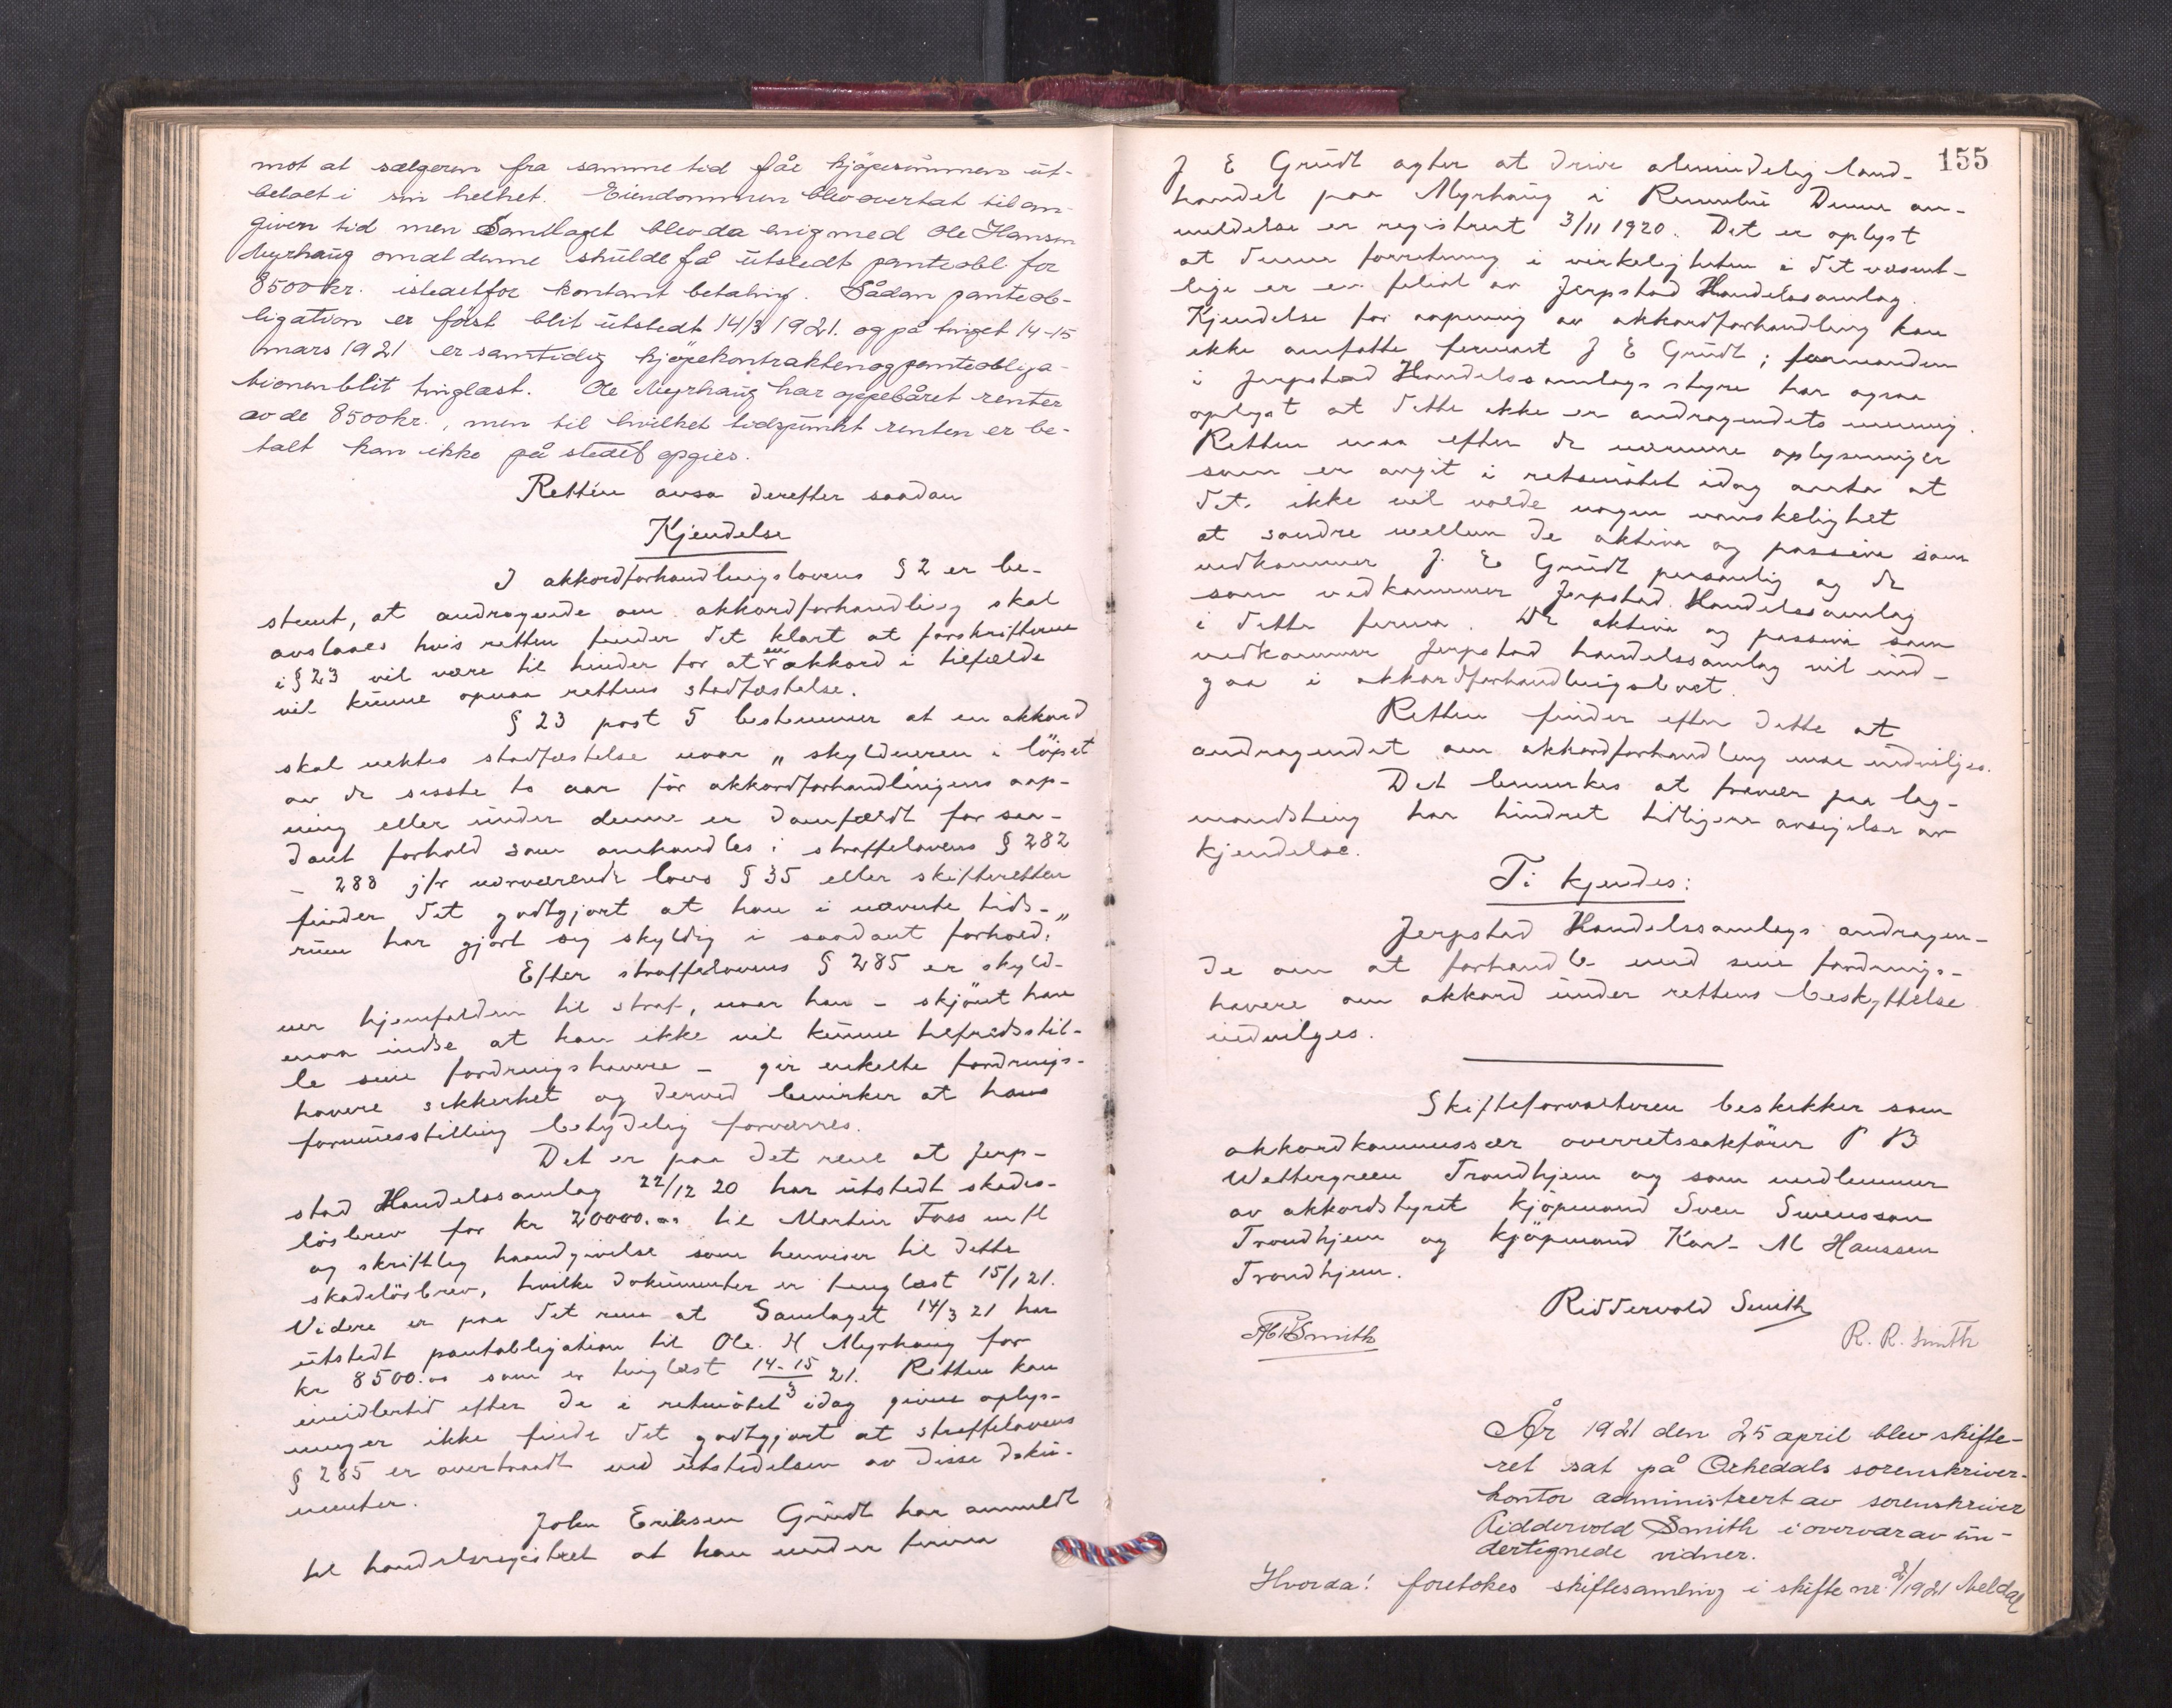 mot at sælgeren fra samme tid får kjöpesummen ut-
betalt i sin helhet. Eiendommen blev overtat til an-
given tid men Samlaget blev da enig med Ole Hansen
Myrhaug om at denne skulde få utstedt panteobl. for
8500 kr. istedetfor kontant betaling. Sådan panteob-
ligation er först blit utstedt 14/3 1921. og på tinget 14-15
mars 1921 er samtidig kjöpekontrakten og panteobliga-
tionen blit tinglæst. Ole Myrhaug har oppebåret renter
av de 8500 kr., men til hvilket tidspunkt renten er be-
talt kan ikke på stedet opgies.
Retten avsa derefter saadan
Kjendelse
I akkordforhandlingslovens § 2 er be-
stemt, at andragende om akkordforhandling skal
avslaaes hvis retten finder det klart at forskriftene
i § 23 vil være til hinder for at en akkord i tilfælde
vil kunne opnaa rettens stadfæstelse.
§ 23 post 5 bestemmer at en akkord
skal nektes stadfæstelse naar „skyldneren i löpet
av de sisste to aar för akkordforhandlingens aap-
ning eller under denne er domfældt for saa-
dant forhold som omhandles i straffelovens § 282
- 288 jfr nærværende lovs § 35 eller skifteretten
finder det godtgjort at han i nævnte tids-
rum har gjort sig skyldig i saadant forhold."
Efter straffelovens § 285 er skyld-
ner hjemfalden til straf, naar han - skjönt han
maa indse at han ikke vil kunne tilfredsstil-
le sine fordringshavere - gir enkelte fordrings-
havere sikkerhet og derved bevirker at hans
formuesstilling betydelig forværres.
Det er paa det rene at Jerp-
stad Handelssamlag 22/12 20 har utstedt skades-
lösbrev for kr 20000.00 til Martin Foss mfl
og skriftlig haandgivelse som henviser til dette
skadelösbrev, hvilke dokumenter er tinglæst 15/1 21.
Videre er paa det rene at Samlaget 14/3 21 har
utstedt pantobligation til Ole H Myrhaug for
kr 8500.00 som er tinglæst 14-15/3 21. Retten kan
imidlertid efter de i retsmötet idag givne oplys-
ninger ikke finde det godtgjort at straffelovens
§ 285 er overtraadt ved utstedelsen av disse doku-
menter.
John Eriksen Grudt har anmeldt
til handelsregistret at han under firma
155
J E Grudt agter at drive almindelig land-
handel paa Myrhaug i Rennebu Denne an-
meldelse er registrert 3/11 1920. Det er oplyst
at denne forretning i virkeligheten i det væsent-
lige er en filial av Jerpstad Handelssamlag.
Kjendelse for aapning av akkordforhandling kan
ikke omfatte firmaet J E Grudt; formanden
i Jerpstad Handelssamlags styre har ogsaa
oplyst at dette ikke er andragendets mening.
Retten maa efter de nærmere oplysninger
som er avgit i retsmötet idag anta at
det ikke vil volde nogen vanskelighet
at sondre mellem de aktiva og passiva som
vedkommer J. E Grudt personlig og de
som vedkommer Jerpstad Handelssamlag
i dette firma. De aktiva og passiva som
vedkommer Jerpstad handelssamlag vil ind-
gaa i akkordforhandlingsboet.
Retten finder efter dette at
andragendet om akkordforhandling maa indvilges.
Det bemerkes at fravær paa lag-
mandsting har hindret tidligere avsigelse av
kjendelse.
Ti kjendes:
Jerpstad Handelssamlags andragen-
de om at forhandle med sine fordrings-
havere om akkord under rettens beskyttelse
indvilges.
Skifteforvalteren beskikker som
akkordkommissær overretssakförer P B
Wettergreen Trondhjem og som medlemmer
av akkordstyret kjöpmand Sven Svensson
Trondhjem og kjöpmand Karl M Hanssen
Trondhjem.
Riddervold Smith
Smith
R. R. Smith
År 1921 den 25 april blev skifte-
ret sat på Orkedals sorenskriver-
kontor administrert av sorenskriver
Riddervold Smith i overvær av un-
dertegnede vidner.
Hvorda! foretokes skiftesamling i skifte nr. 8/1921 Meldal